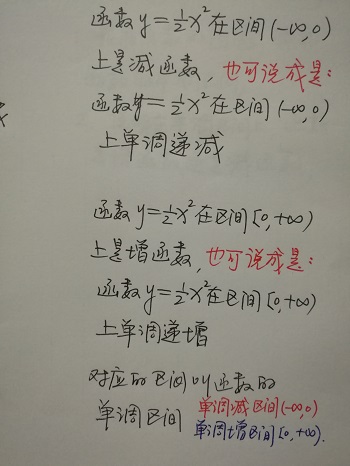 函数y=½x²在区间(-∞,0)
上是减函数,也可说成是:
函数y=½x²在区间(-∞,0)
上单调递减
函数y=½x²在区间[0,+∞)
上是增函数,也可说成是:
函数y=½x²在区间[0,+∞)
上单调递增
对应的区间叫函数的
单调区间 单调减区间(-∞,0)
单调增区间[0,+∞).